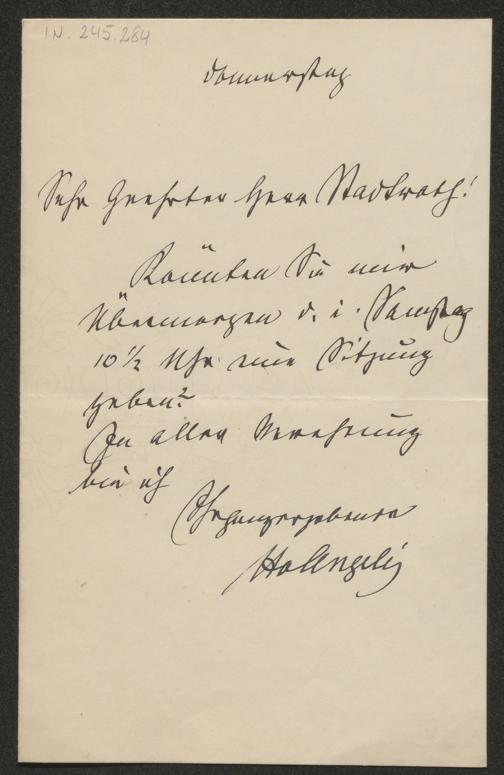 IN. 245.284
Donnerstag
Sehr Geehrter Herr Stadtrath!
Könnten Sie mir
Übermorgen d. i. Samstag
10 1/2 Uhr eine Sitzung
geben?
In aller Verehrung
bin ich
Ihr ganz ergebener
HvAngeli